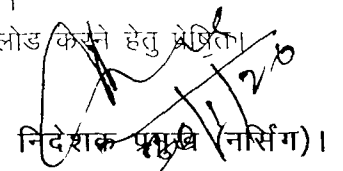 लोड करने हेतु प्रेषित।
निदेशक प्रमुख (नर्सिंग)।